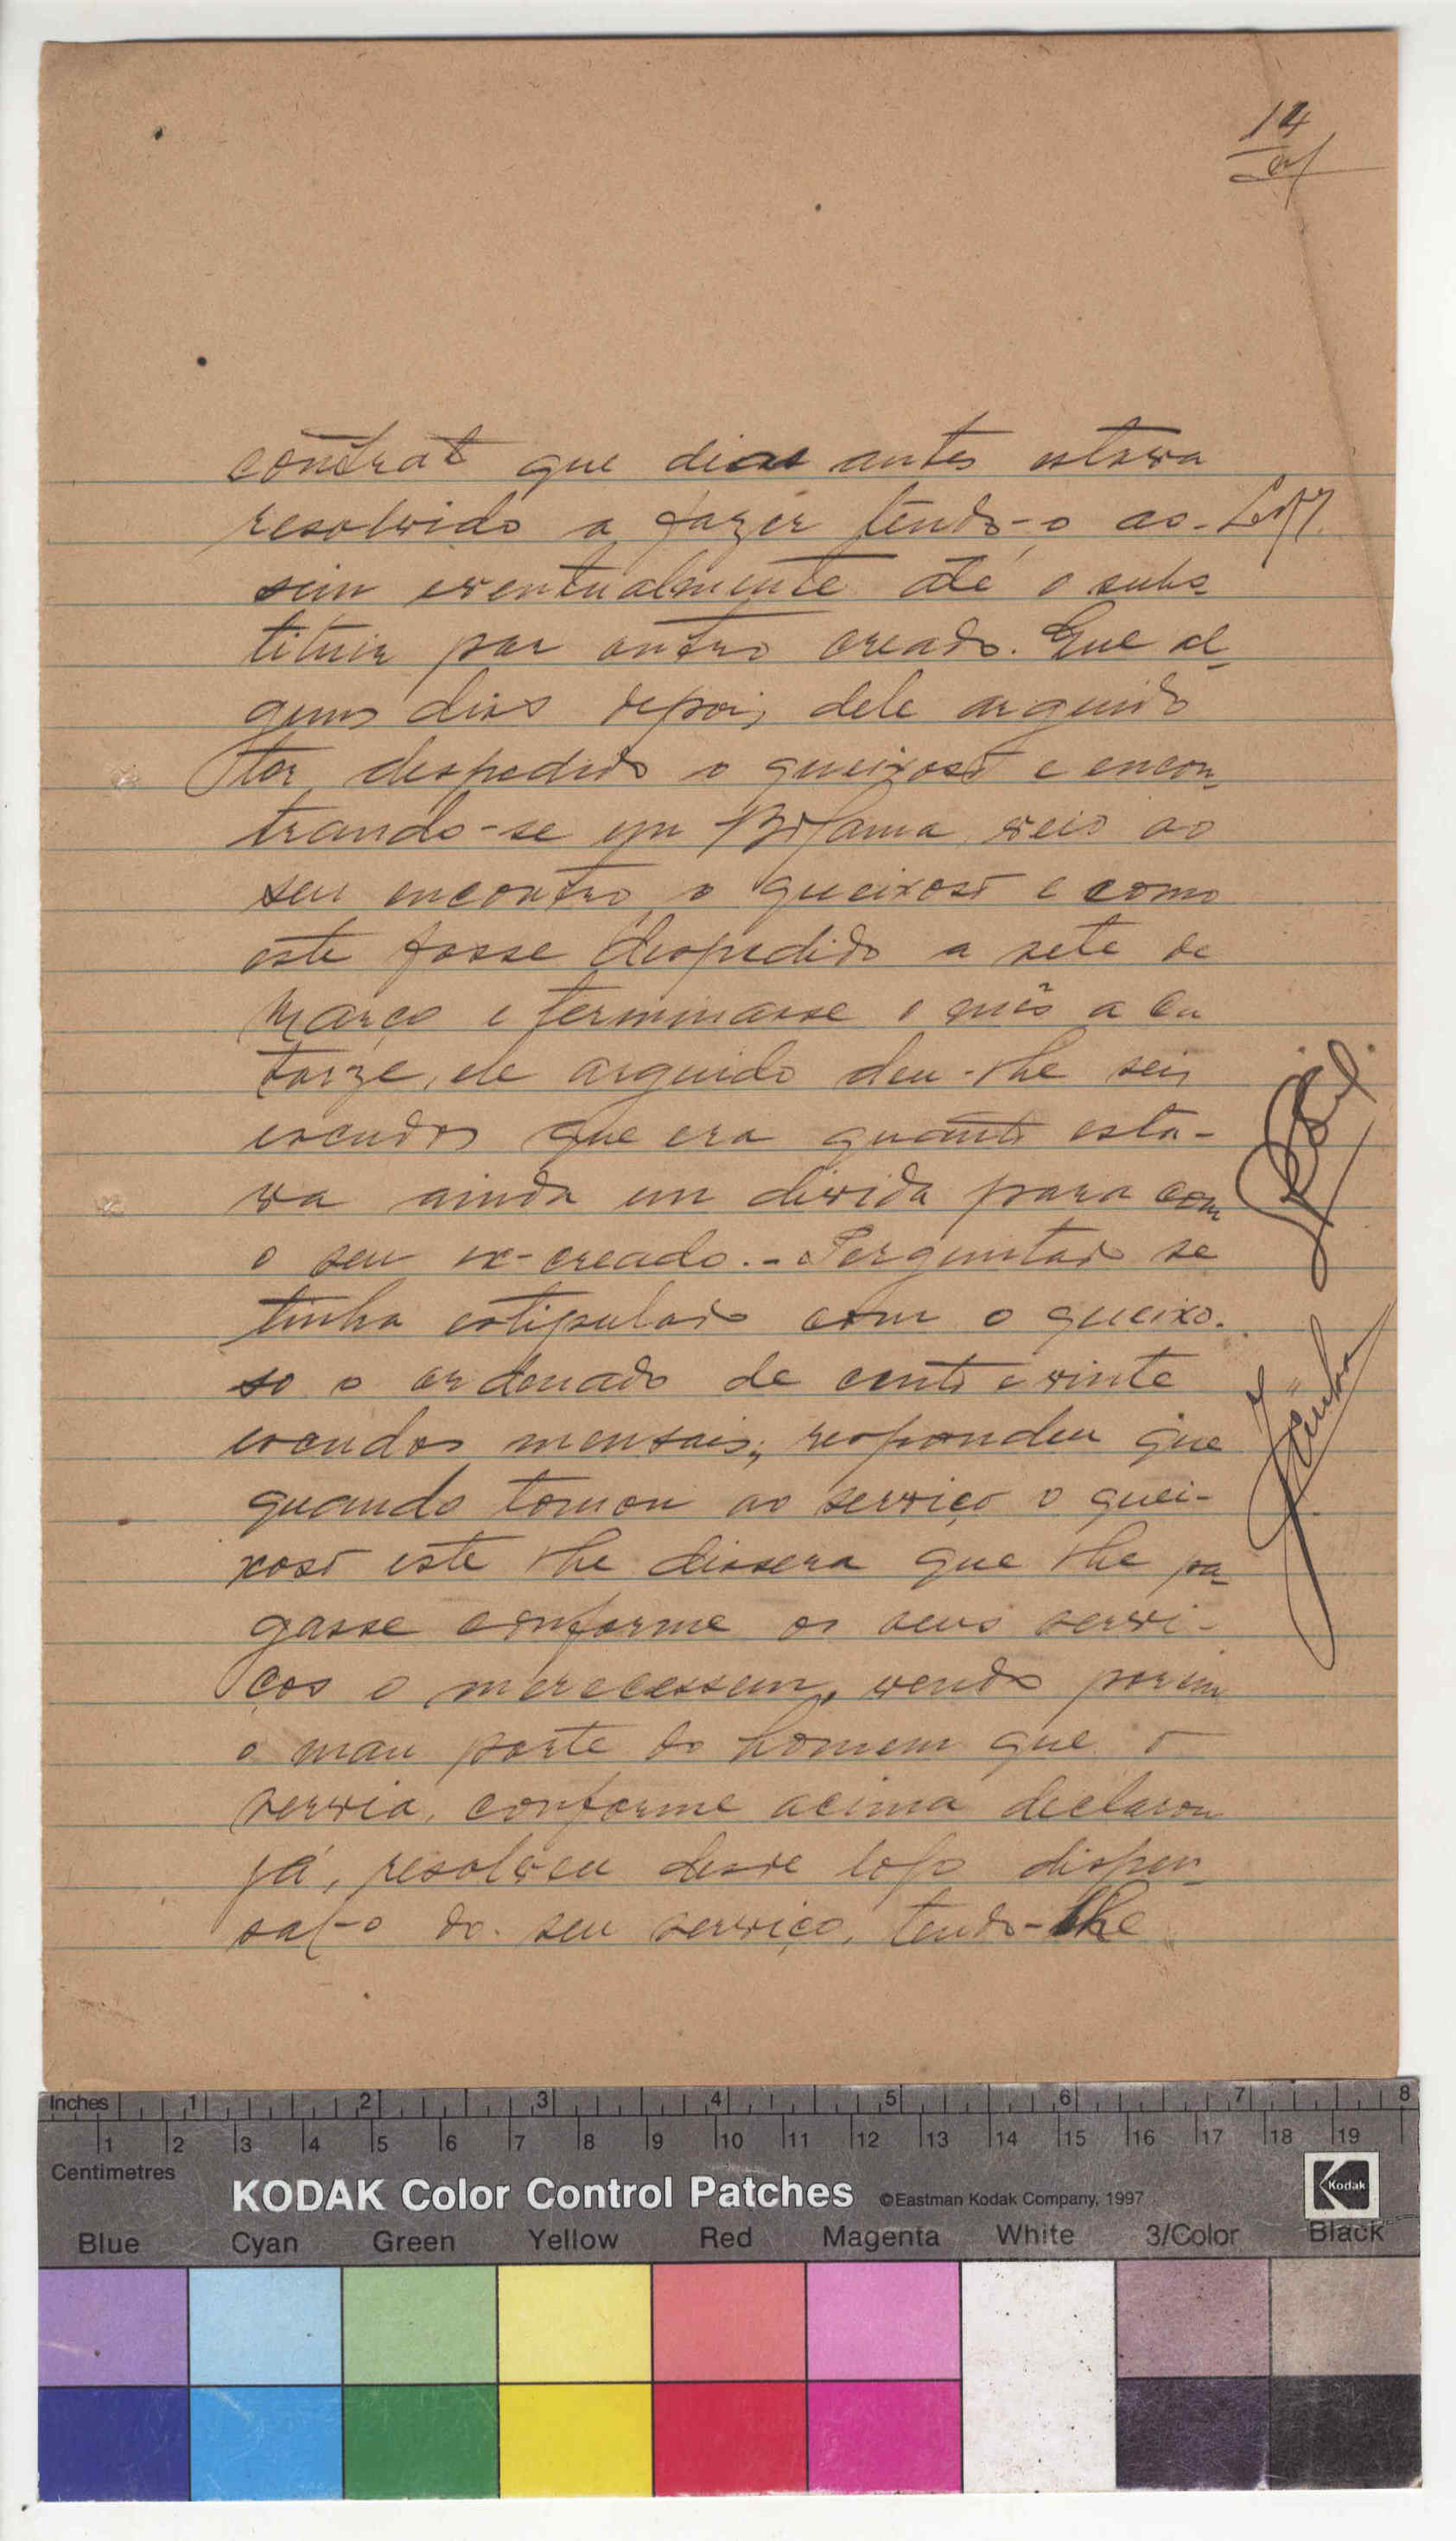 14
contrato que dias antes estava
resolvido a fazer tendo-o as-
sim eventualmente até o subs
tituir por outro creado. Que al_
guns dias depois dele arguido
ter despedido o queixoso e encon_
trando-se em Bafama veio ao
seu encontro o queixoso e como
este fosse despedido a sete de
março e terminasse o mês a ca
torze, ele arguido deu-lhe seis
escudos que era quanto esta-
va ainda em divida para com
o seu ex-creado.- Perguntado se
tinha estipulado com o queixo-
so o ordenado de cento e vinte
escudos mensais; respondeu que
quando tomou ao serviço o quei-
xoso este lhe dissera que lhe pa_
gasse conforme os seus servi-
ços o merecessem, vendo porem
o mau porte do homem que o
servia, conforme acima declarou
já, resolveu desde logo dispen_
sal-o do seu serviço, tendo-lhe
Inches 1 2 3 4 5 6 7 8
1 2 3 4 5 6 7 8 9 10 11 12 13 14 15 16 17 18 19
Centimetres
KODAK Color Control Patches ©Eastman Kodak Company, 1997 Kodak
Blue Cyan Green Yellow Red Magenta White 3/Color Black